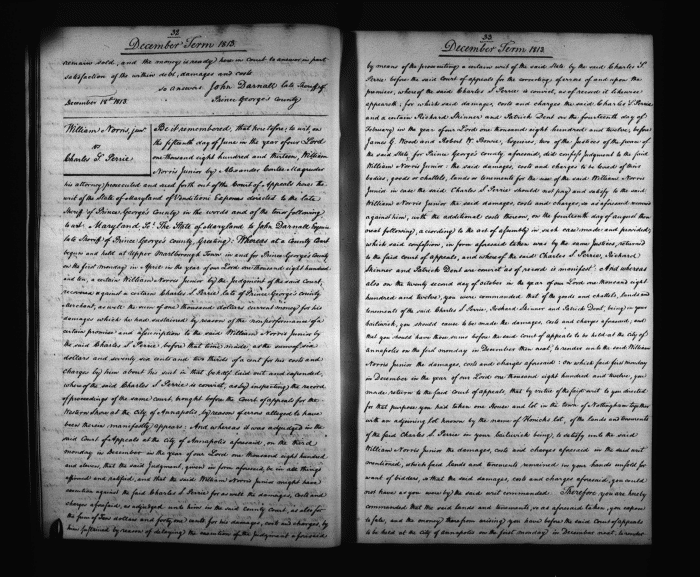 32
December Term 1813.
remains sold, and the money is ready here in Court to answer in part
satisfaction of the within debt, damages and costs
So answers John Darnall late Sheriff of
Prince George's County
December 18th 1813.
William Norris, junr
vs
Charles S. Perrie
Be it remembered, that heretofore, to wit, on
the fifteenth day of June in the year of our Lord
one thousand eight hundred and thirteen, William
Norris Junior by Alexander Contee Magruder
his attorney, prosecuted and sued forth out of the Court of Appeals here the
writ of the State of Maryland of Venditioni Exponas directed to the late
Sheriff of Prince George's County in the words and of the tenor following
to wit: Maryland Sc. The State of Maryland to John Darnall Esquire
late Sheriff of Prince George's County, Greeting: Whereas at a County Court
begun and held at Upper Marlborough Town in and for Prince George's County
on the first monday in April in the year of our Lord one thousand eight hundred
and ten, a certain William Norris Junior by the Judgment of the said Court,
recovered against a certain Charles S. Perrie late of Prince George's county
Merchant, as well the sum of one thousand dollars current money for his
damages which he had sustained by reason of the nonperformance of a
certain promise and assumption to the said William Norris Junior by
the said Charles S. Perrie, before that time made, as the sum of six
dollars and seventy six cents and two thirds of a cent for his costs and
charges by him about his suit in that behalf laid out and expended,
whereof the said Charles S Perrie is convict, as by inspecting the record
of proceedings of the same court, brought before the Court of appeals for the
Western Shore at the City of Annapolis, by reason of errors alleged to have
been therein manifestly appears: And whereas it was adjudged in the
said Court of Appeals at the city of Annapolis aforesaid, on the third
monday in December in the year of our Lord one thousand eight hundred
and eleven, that the said Judgment, given in form aforesaid, be in all things
affirmed and ratified, and that the said William Norris Junior might have
execution against the said Charles S Perrie for as well the damages, costs and
charges aforesaid, so adjudged unto him in the said County Court, as also for
the sum of dollars and forty one cents for his damages, costs and charges, by
him sustained by reason of delaying the execution of the Judgment aforesaid
33
December Term 1813.
by means of the prosecuting a certain writ of the said State by the said Charles S
Perrie before the said Court of appeals for the correcting of errors of and upon the
premises, whereof the said Charles S Perrie is convict, as of record it likewise
appears; for which said damages, costs and charges the said Charles S Perrie
and a certain Richard Skinner and Patrick Dent on the fourteenth day of
February in the year of our Lord one thousand eight hundred and twelve, before
James G. Wood and Robert W. Bowie, Esquires, two of the Justices of the peace of
the said State for Prince George's county aforesaid, did confess Judgment to the said
William Norris Junior the said damages, costs and charges to be levied of their
bodies, goods or chattels, lands or tenements for the use of the said William Norris
Junior in case the said Charles S Perrie should not pay and satisfy to the said
William Norris Junior the said damages, costs and charges, so as aforesaid recovered
against him, with the additional costs thereon, on the fourteenth day of August then
next following, according to the act of assembly in such case made and provided;
which said confession, in form aforesaid taken was by the same Justices, returned
to the said court of appeals, and whereof the said Charles S Perrie, Richard
Skinner and Patrick Dent are convict as of record is manifest: And whereas
also on the twenty second day of October in the year of our Lord one thousand eight
hundred and twelve, you were commanded that of the goods and chattels, lands and
tenements of the said Charles S Perrie, Richard Skinner and Patrick Dent, being in your
bailiwick, you should cause to be made the damages, costs and charges aforesaid, and
that you should have those sums before the said court of appeals to be held at the city of
annapolis on the first monday in December then next, to render unto the said William
Norris Junior the damages, costs and charges aforesaid: On which said first monday
in December in the year of our Lord one thousand eight hundred and twelve, you
made return to the said Court of appeals, that by virtue of the said writ to you directed
for that purpose, you had taken one House and lot in the town of Nottingham together
with an adjoining lot known by the name of lot, of the lands and tenements
of the said Charles S. Perrie in your bailiwick being, to satisfy unto the said
William Norris Junior the damages, costs and charges aforesaid in the said writ
mentioned, which said lands and tenements remained in your hands unsold for
want of bidders, so that the said damages, costs and charges aforesaid, you could
not have as you were by the said writ commanded: Therefore you are hereby
commanded that the said lands and tenements, so as aforesaid taken, you expose
to sale, and the money therefrom arising you have before the said Court of appeals
to be held at the city of annapolis on the first monday in December next, to render